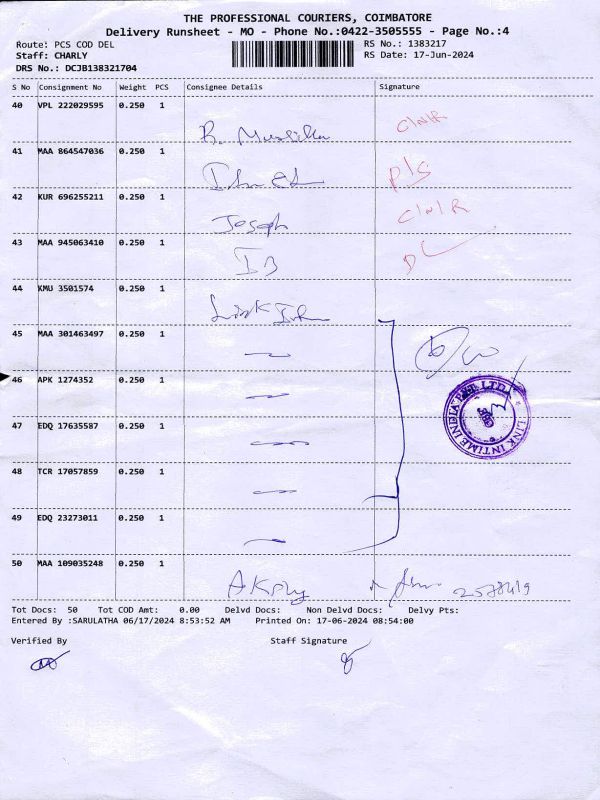 THE PROFESSIONAL COURIERS, COIMBATORE
Delivery Runsheet - MO - Phone No.:0422-3505555 - Page No.:4
Route: PCS COD DEL RS No.: 1383217
Staff: CHARLY RS Date: 17-Jun-2024
DRS No.: DCJB138321704
S No Consignment No Weight PCS Consignee Details Signature
40 VPL 222029595 0.250 1
C/N/R
41 MAA 864547036 0.250 1
P/S
42 KUR 696255211 0.250 1
Joseph C/N/R
43 MAA 945063410 0.250 1
44 KMU 3501574 0.250 1
Link
45 MAA 301463497 0.250 1
46 APK 1274352 0.250 1
LINK INTIME INDIA PVT. LTD.
47 EDQ 17635587 0.250 1
48 TCR 17057859 0.250 1
49 EDQ 23273011 0.250 1
50 MAA 109035248 0.250 1
Tot Docs: 50 Tot COD Amt: 0.00 Delvd Docs: Non Delvd Docs: Delvy Pts:
Entered By :SARULATHA 06/17/2024 8:53:52 AM Printed On: 17-06-2024 08:54:00
Verified By Staff Signature